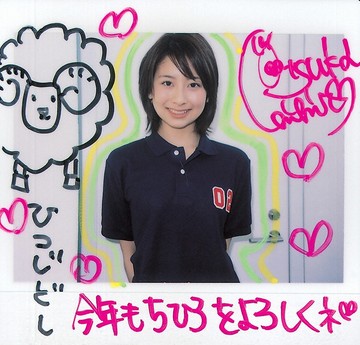 ひつじどし
今年もちひろをよろしくネ